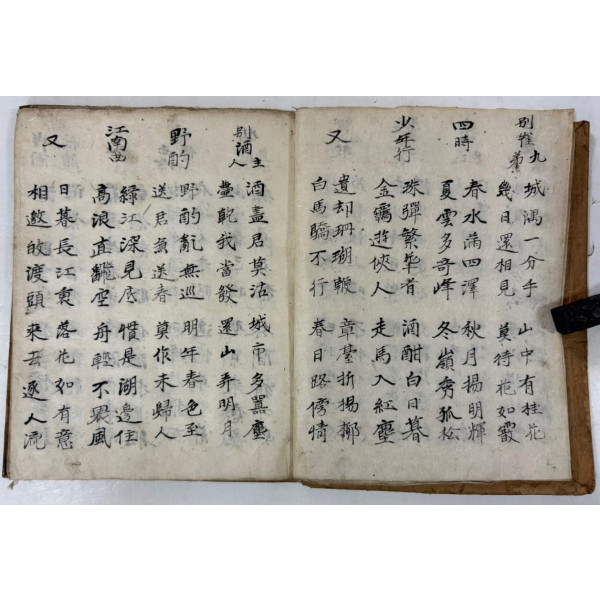 別崔九弟
城隅一分手 山中有桂花
幾日還相見 莫待花如霰
四時
春水滿四澤 秋月揚明輝
夏雲多奇峰 冬嶺秀孤松
少年行
珠彈繁華者 酒酣白日暮
金羈遊俠人 走馬入紅塵
又
遺却珊瑚鞭 章臺折楊柳
白馬驕不行 春日路傍情
別酒主人
酒盡君莫沽 城市多囂塵
壺乾我當發 還山弄明月
野酌
野酌亂無巡 明年春色至
送君兼送春 莫作未歸人
江南曲
綠江深見底 慣是湖邊住
高浪直翻空 舟輕不畏風
又
日暮長江裏 落花如有意
相邀皈渡頭 來去逐人流